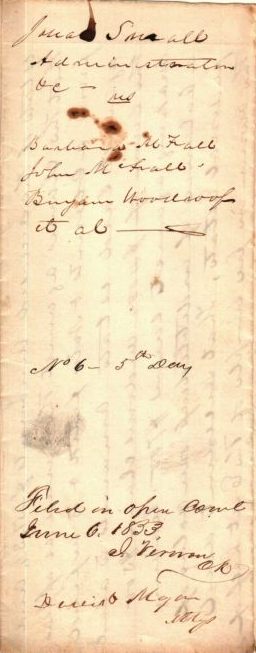 Jonas Small
Administrator
&c — vs
Barbara McFall
John McFall
Bryam Woodroof
et al —
No 6 — 5th Day
Filed in open Court
June 6. 1833
J Vernon
Ck
Attys